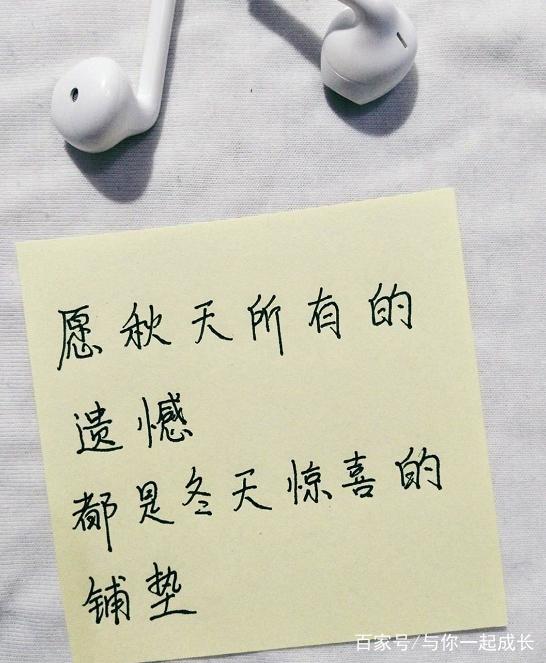 愿秋天所有的
遗憾
都是冬天惊喜的
铺垫
百家号/与你一起成长